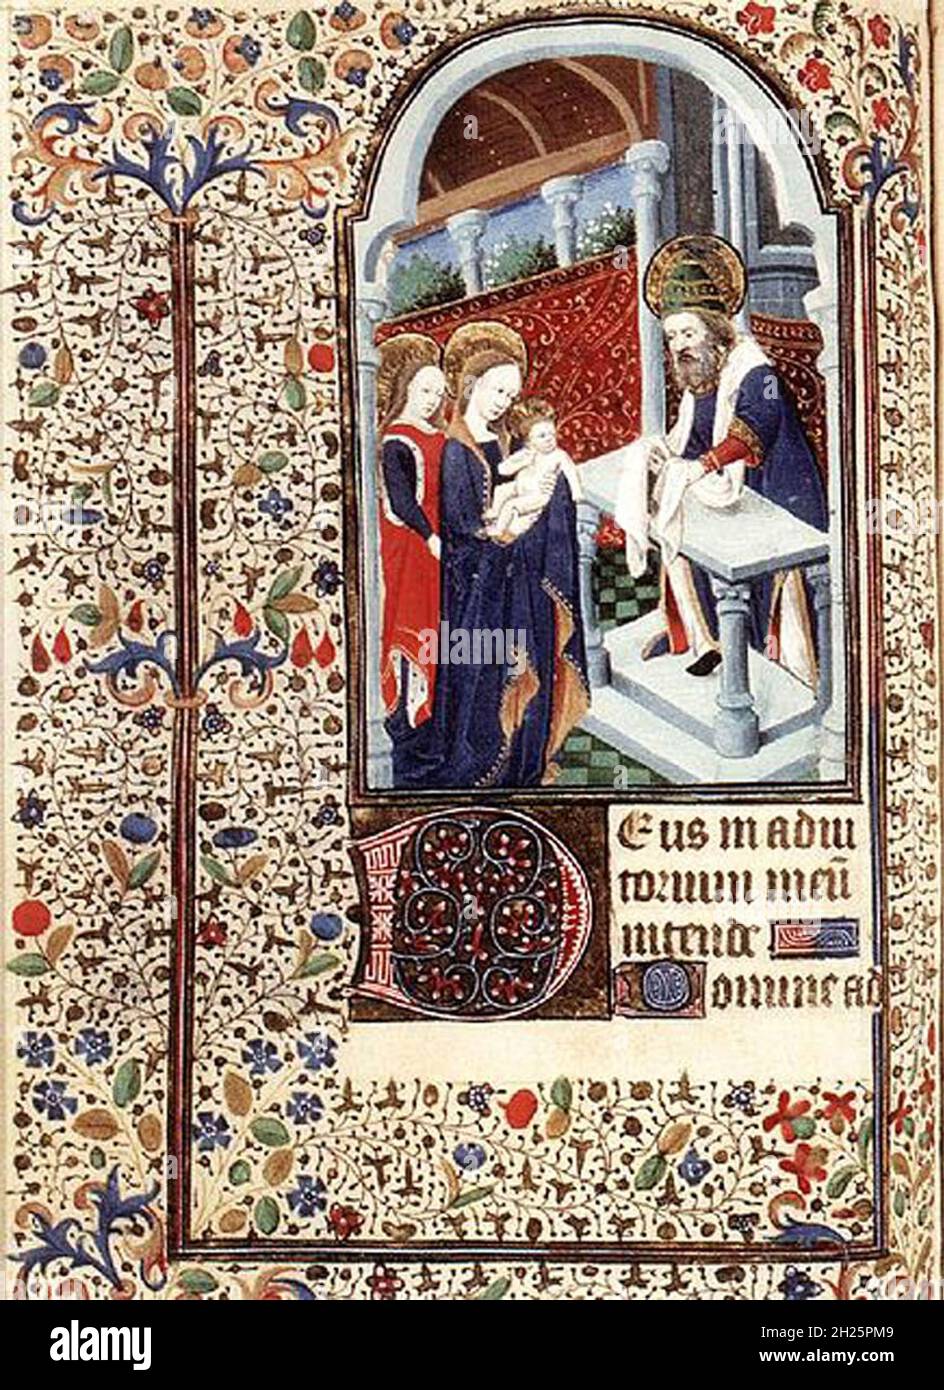 Eus in adiu
torium meū
intende
Domine ad
alamy
Image ID: 2H25PM9
www.alamy.com